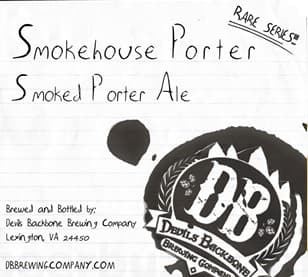 RARE SERIES
Smokehouse Porter
Smoked Porter Ale
Brewed and Bottled by:
Devils Backbone Brewing Company
Lexington, VA 24450
DBBREWINGCOMPANY.COM
DB
DEVILS BACKBONE
BREWING COMPANY